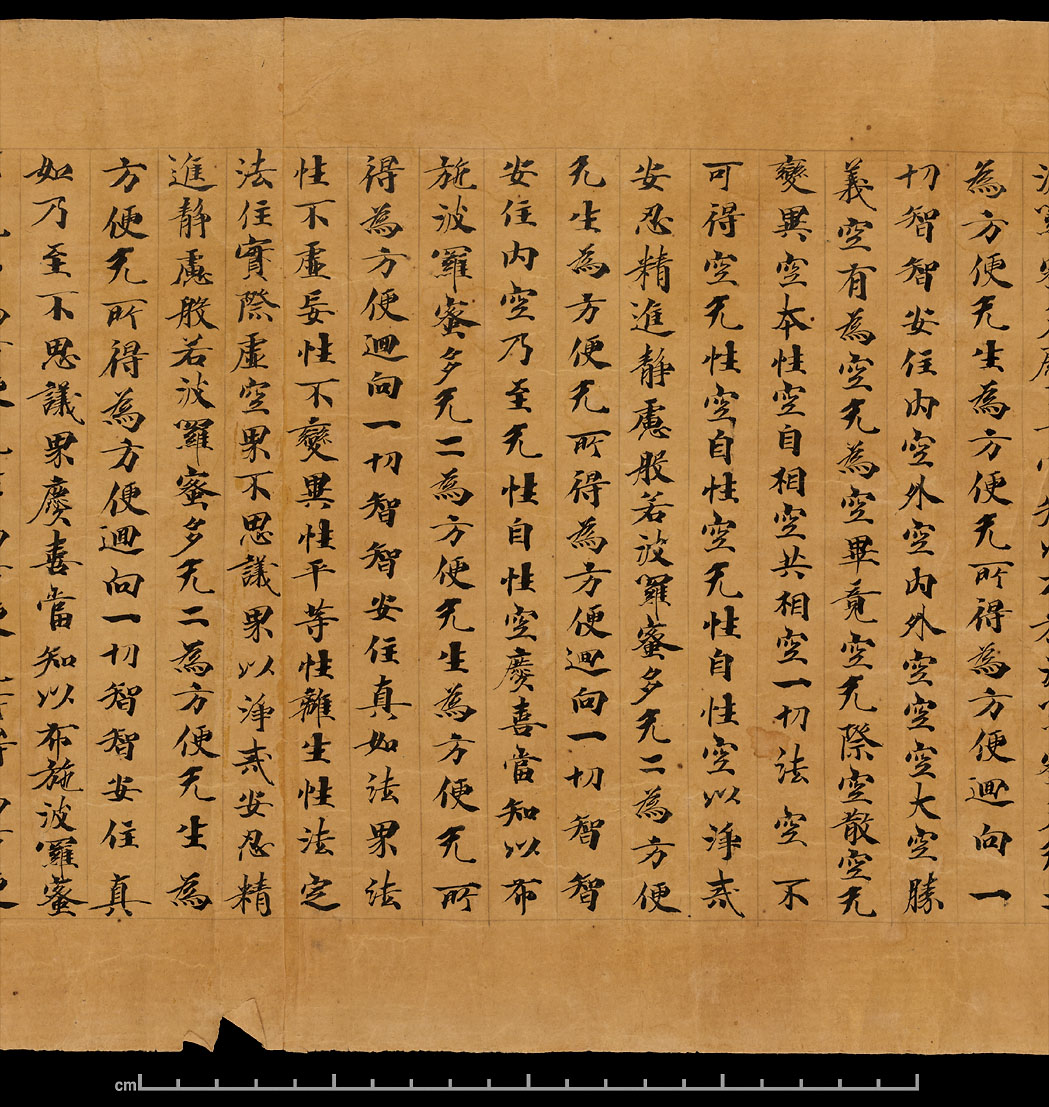 為方便无生為方便无所得為方便迴向一
切智智安住內空外空內外空空空大空勝
義空有為空无為空畢竟空无際空散空无
變異空本性空自相空共相空一切法空不
可得空无性空自性空无性自性空以淨戒
安忍精進靜慮般若波羅蜜多无二為方便
无生為方便无所得為方便迴向一切智智
安住內空乃至无性自性空慶喜當知以布
施波羅蜜多无二為方便无生為方便无所
得為方便迴向一切智智安住真如法界法
性不虛妄性不變異性平等性離生性法定
法住實際虛空界不思議界以淨戒安忍精
進靜慮般若波羅蜜多无二為方便无生為
方便无所得為方便迴向一切智智安住真
如乃至不思議界慶喜當知以布施波羅蜜
cm